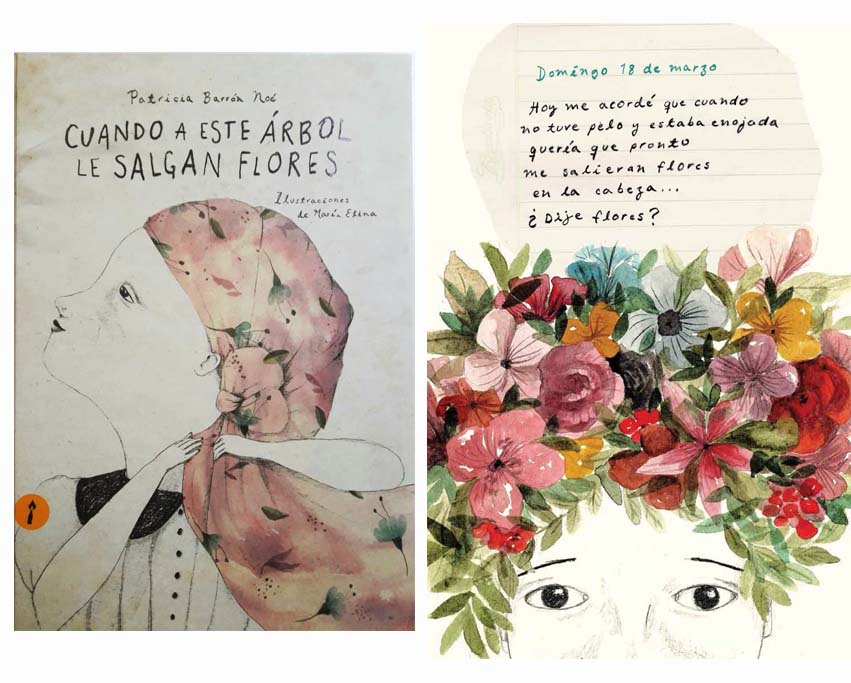 Patricia Barrón Noé
CUANDO A ESTE ÁRBOL
LE SALGAN FLORES
Ilustraciones
de María Elina
Domíngo 18 de marzo
Hoy me acordé que cuando
no tuve pelo y estaba enojada
quería que pronto
me salieran flores
en la cabeza...
¿Dije flores?